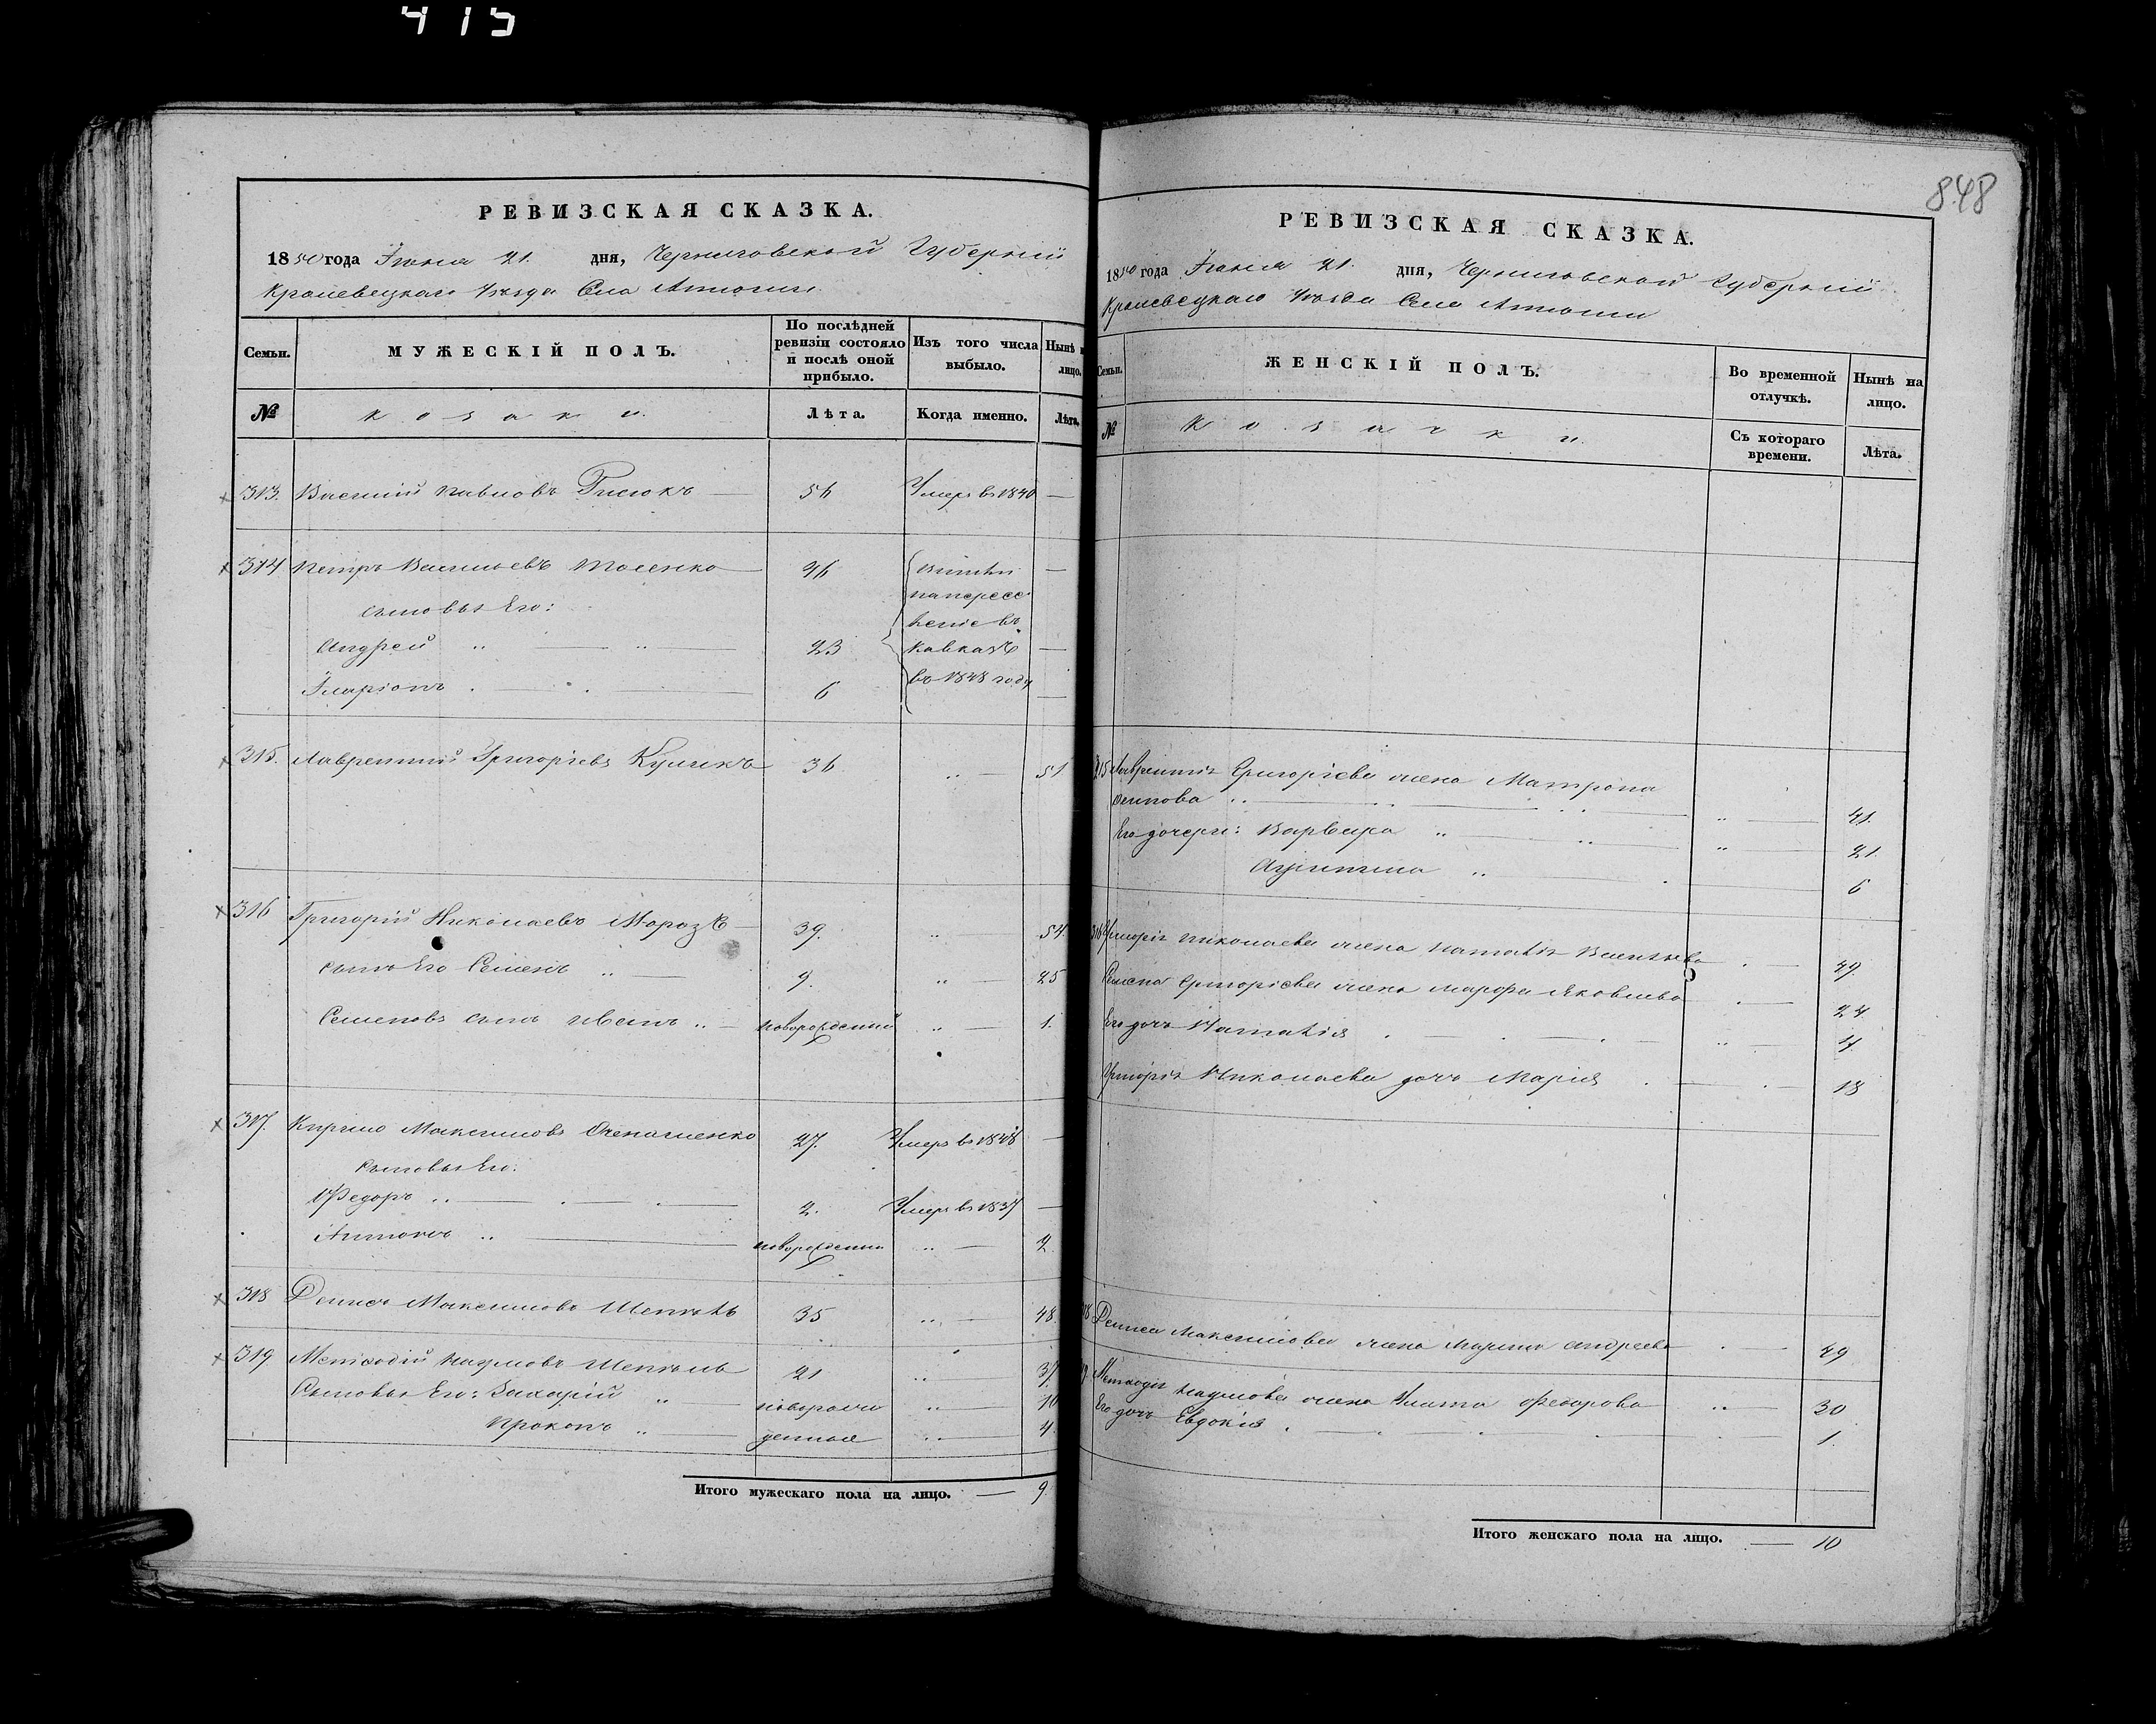 415
848
РЕВИЗСКАЯ СКАЗКА.
1850 года Іюня 21. дня, Черниговской Губерніи
Кролевецкаго Уѣзда Села
Семьи. МУЖЕСКІЙ ПОЛЪ. По послѣдней ревизіи состояло и послѣ оной прибыло. Изъ того числа выбыло. Нынѣ на лицо.
№ козаки. Лѣта. Когда именно. Лѣта.
313. Василій Павловъ 56 Умеръ въ 1840 —
314 Петръ Васильевъ 46 —
сыновья Его:
Андрей 23 Кавказъ —
Иларіонъ 6 въ 1848 году —
315. Лаврентій Григоріевъ Куликъ 36 51
316 Григорій Николаевъ Морозъ 39. 54.
сынъ Его Семенъ 9. 25
Семеновъ сынъ Иванъ новорожденный 1.
317. Кирило Максимовъ 27. Умеръ въ 1848 —
сыновья Его:
Федоръ 2. Умеръ въ 1837 —
Антонъ новорожденный
318 Денисъ Максимовъ 35 48
319 Меѳодій Наумовъ 21 37.
Сыновья Его: Захарій новорож 10
Прокопъ денные 4
Итого мужескаго пола на лицо. — 9
РЕВИЗСКАЯ СКАЗКА.
1850 года Іюня 21. дня, Черниговской Губерніи
Кролевецкаго Уѣзда Села
Семьи. ЖЕНСКІЙ ПОЛЪ. Во временной отлучкѣ. Нынѣ на лицо.
№ Козачки. Съ котораго времени. Лѣта.
315 Лаврентія Григоріева жена Матрона
Осипова 41.
Его дочери: Варвара 21.
6
316 Григорія Николаева жена Наталія Васильева 49.
Семена Григоріева жена Марфа Яковлева 24
Его дочь Наталія 4
Григорія Николаева дочь Марія 18
318 Дениса Максимова жена Марина Андреева 49
319 Меѳодія Наумова жена Улита Федорова 30
Его дочь Евдокія 1.
Итого женскаго пола на лицо. — 10